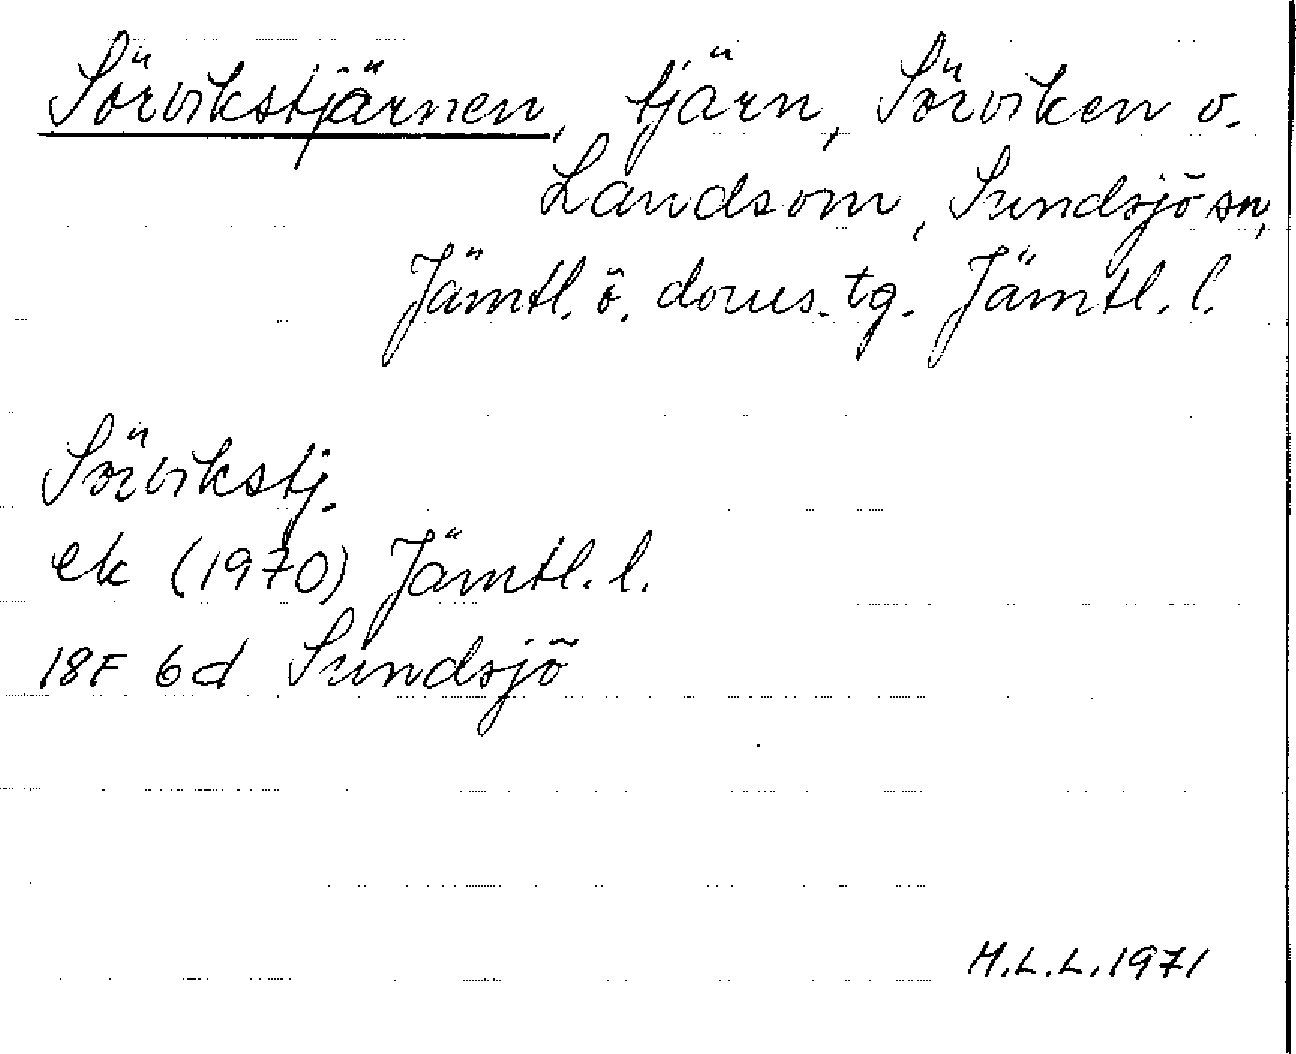 Sörvikstjärnen, tjärn, Sörviken o.
Landsom, Sundsjö sn,
Jämtl. ö. doms. tg. Jämtl. l.
Sörvikstj.
ek (1970) Jämtl. l.
18F 6d Sundsjö
M.L.L. 1971